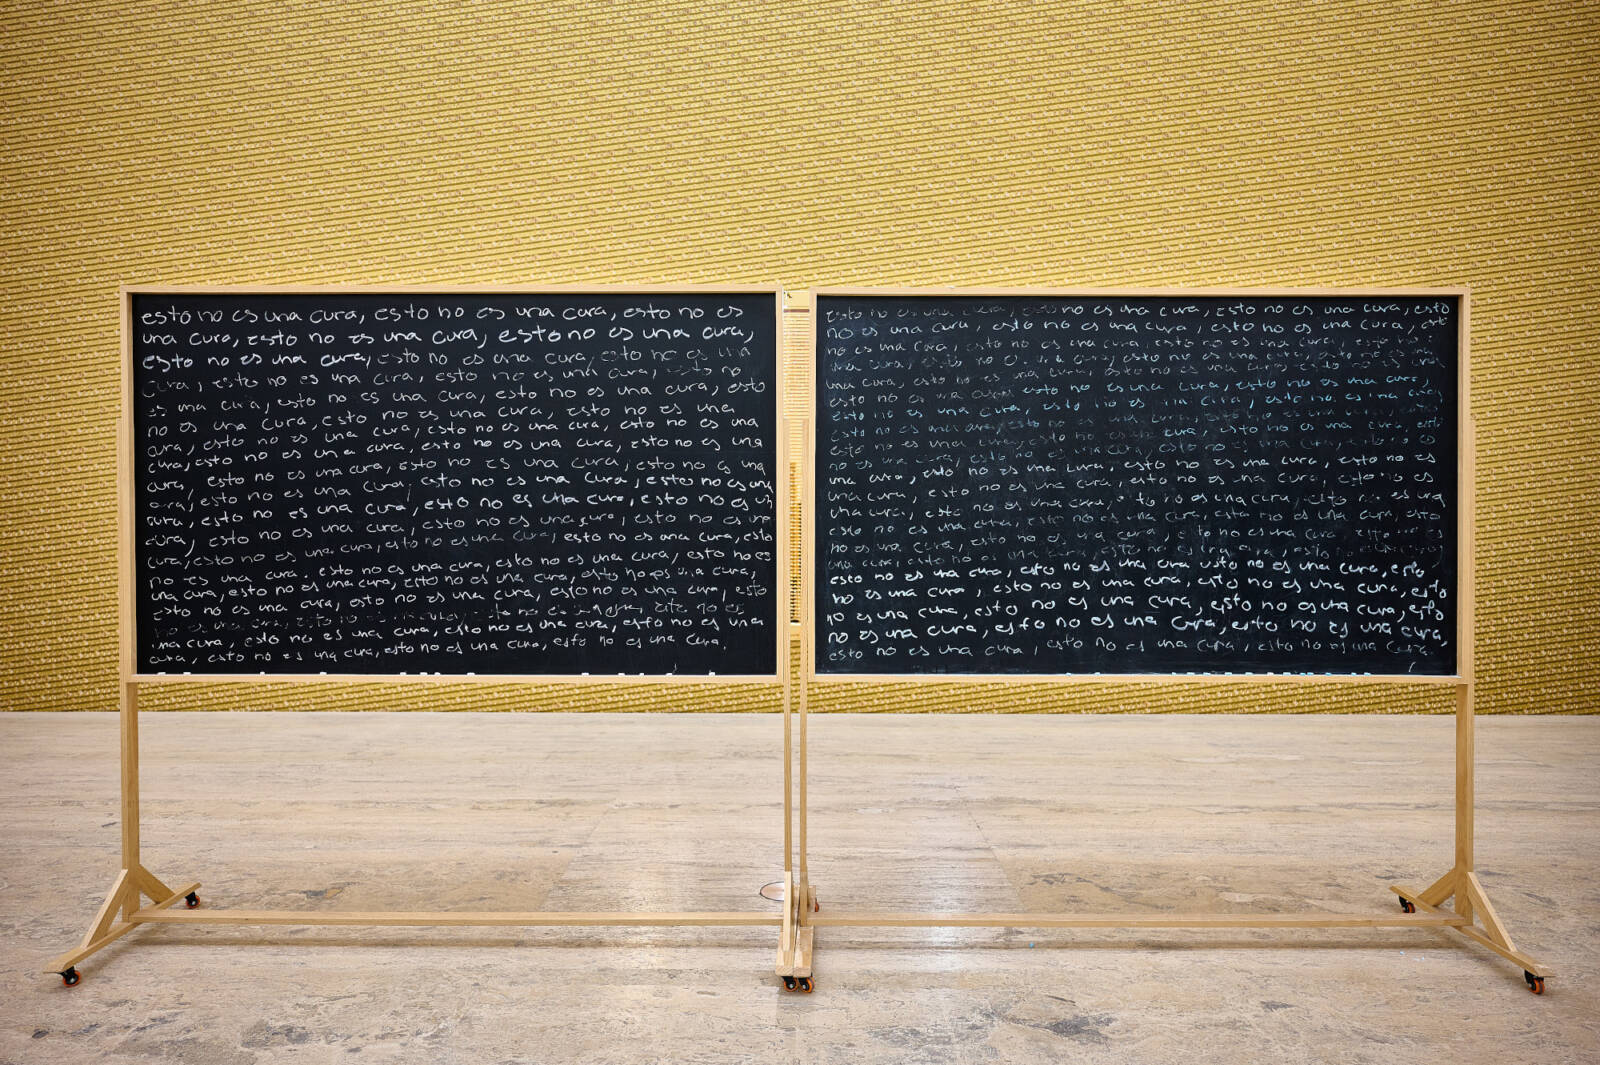 esto no es una cura, esto no es una cura, esto no es
una cura, esto no es una cura, esto no es una cura,
esto no es una cura, esto no es una cura, esto no es una
cura, esto no es una cura, esto no es una cura, esto no
es una cura, esto no es una cura, esto no es una cura, esto
no es una cura, esto no es una cura, esto no es una
cura, esto no es una cura, esto no es una cura, esto no es una
cura, esto no es una cura, esto no es una cura, esto no es una
cura, esto no es una cura, esto no es una cura, esto no es una
cura, esto no es una cura, esto no es una cura, esto no es una
cura, esto no es una cura, esto no es una cura, esto no es u
cura, esto no es una cura, esto no es una cura, esto no es una
cura, esto no es una cura, esto no es una cura, esto no es una cura, esto
no es una cura. esto no es una cura, esto no es una cura, esto no es
una cura, esto no es una cura, esto no es una cura, esto no es una cura,
esto no es una cura, esto no es una cura, esto no es una cura, esto
no es una cura, esto no es esto no es esto no es
una cura, esto no es una cura, esto no es una cura, esto no es una
cura, esto no es una cura, esto no es una cura, esto no es una cura.
esto no es una cura, esto no es una cura, esto no es una cura, esto
no es una cura, esto no es una cura, esto no es una cura, esto
no es una cura, esto no es una cura, esto no es una cura, esto no es
una cura, esto no es una cura, esto no es una cura, esto no es
una cura, esto no es una cura, esto no es una cura, esto no es una cura,
esto no es una cura, esto no es una cura, esto no es una cura,
esto no es una cura, esto no es una cura, esto no es una cura,
esto no es una cura, esto no es una cura, esto no es una cura, esto
no es una cura, esto no es una cura, esto no es una cura, esto
no es una cura, esto no es una cura, esto no es una cura, esto no es
una cura, esto no es una cura, esto no es una cura, esto no es
una cura, esto no es una cura, esto no es una cura, esto no es
una cura, esto no es una cura, esto no es una cura, esto no es una
esto no es una cura, esto no es una cura, esto no es una cura, esto
no es una cura, esto no es una cura, esto no es una cura, esto no es una
cura, esto no es una cura, esto no es una cura, esto no
esto no es una cura, esto no es una cura, esto no es una cura, esto
no es una cura, esto no es una cura, esto no es una cura, esto
no es una cura, esto no es una cura, esto no es una cura, esto
no es una cura, esto no es una cura, esto no es una cura,
esto no es una cura, esto no es una cura, esto no es una cura.